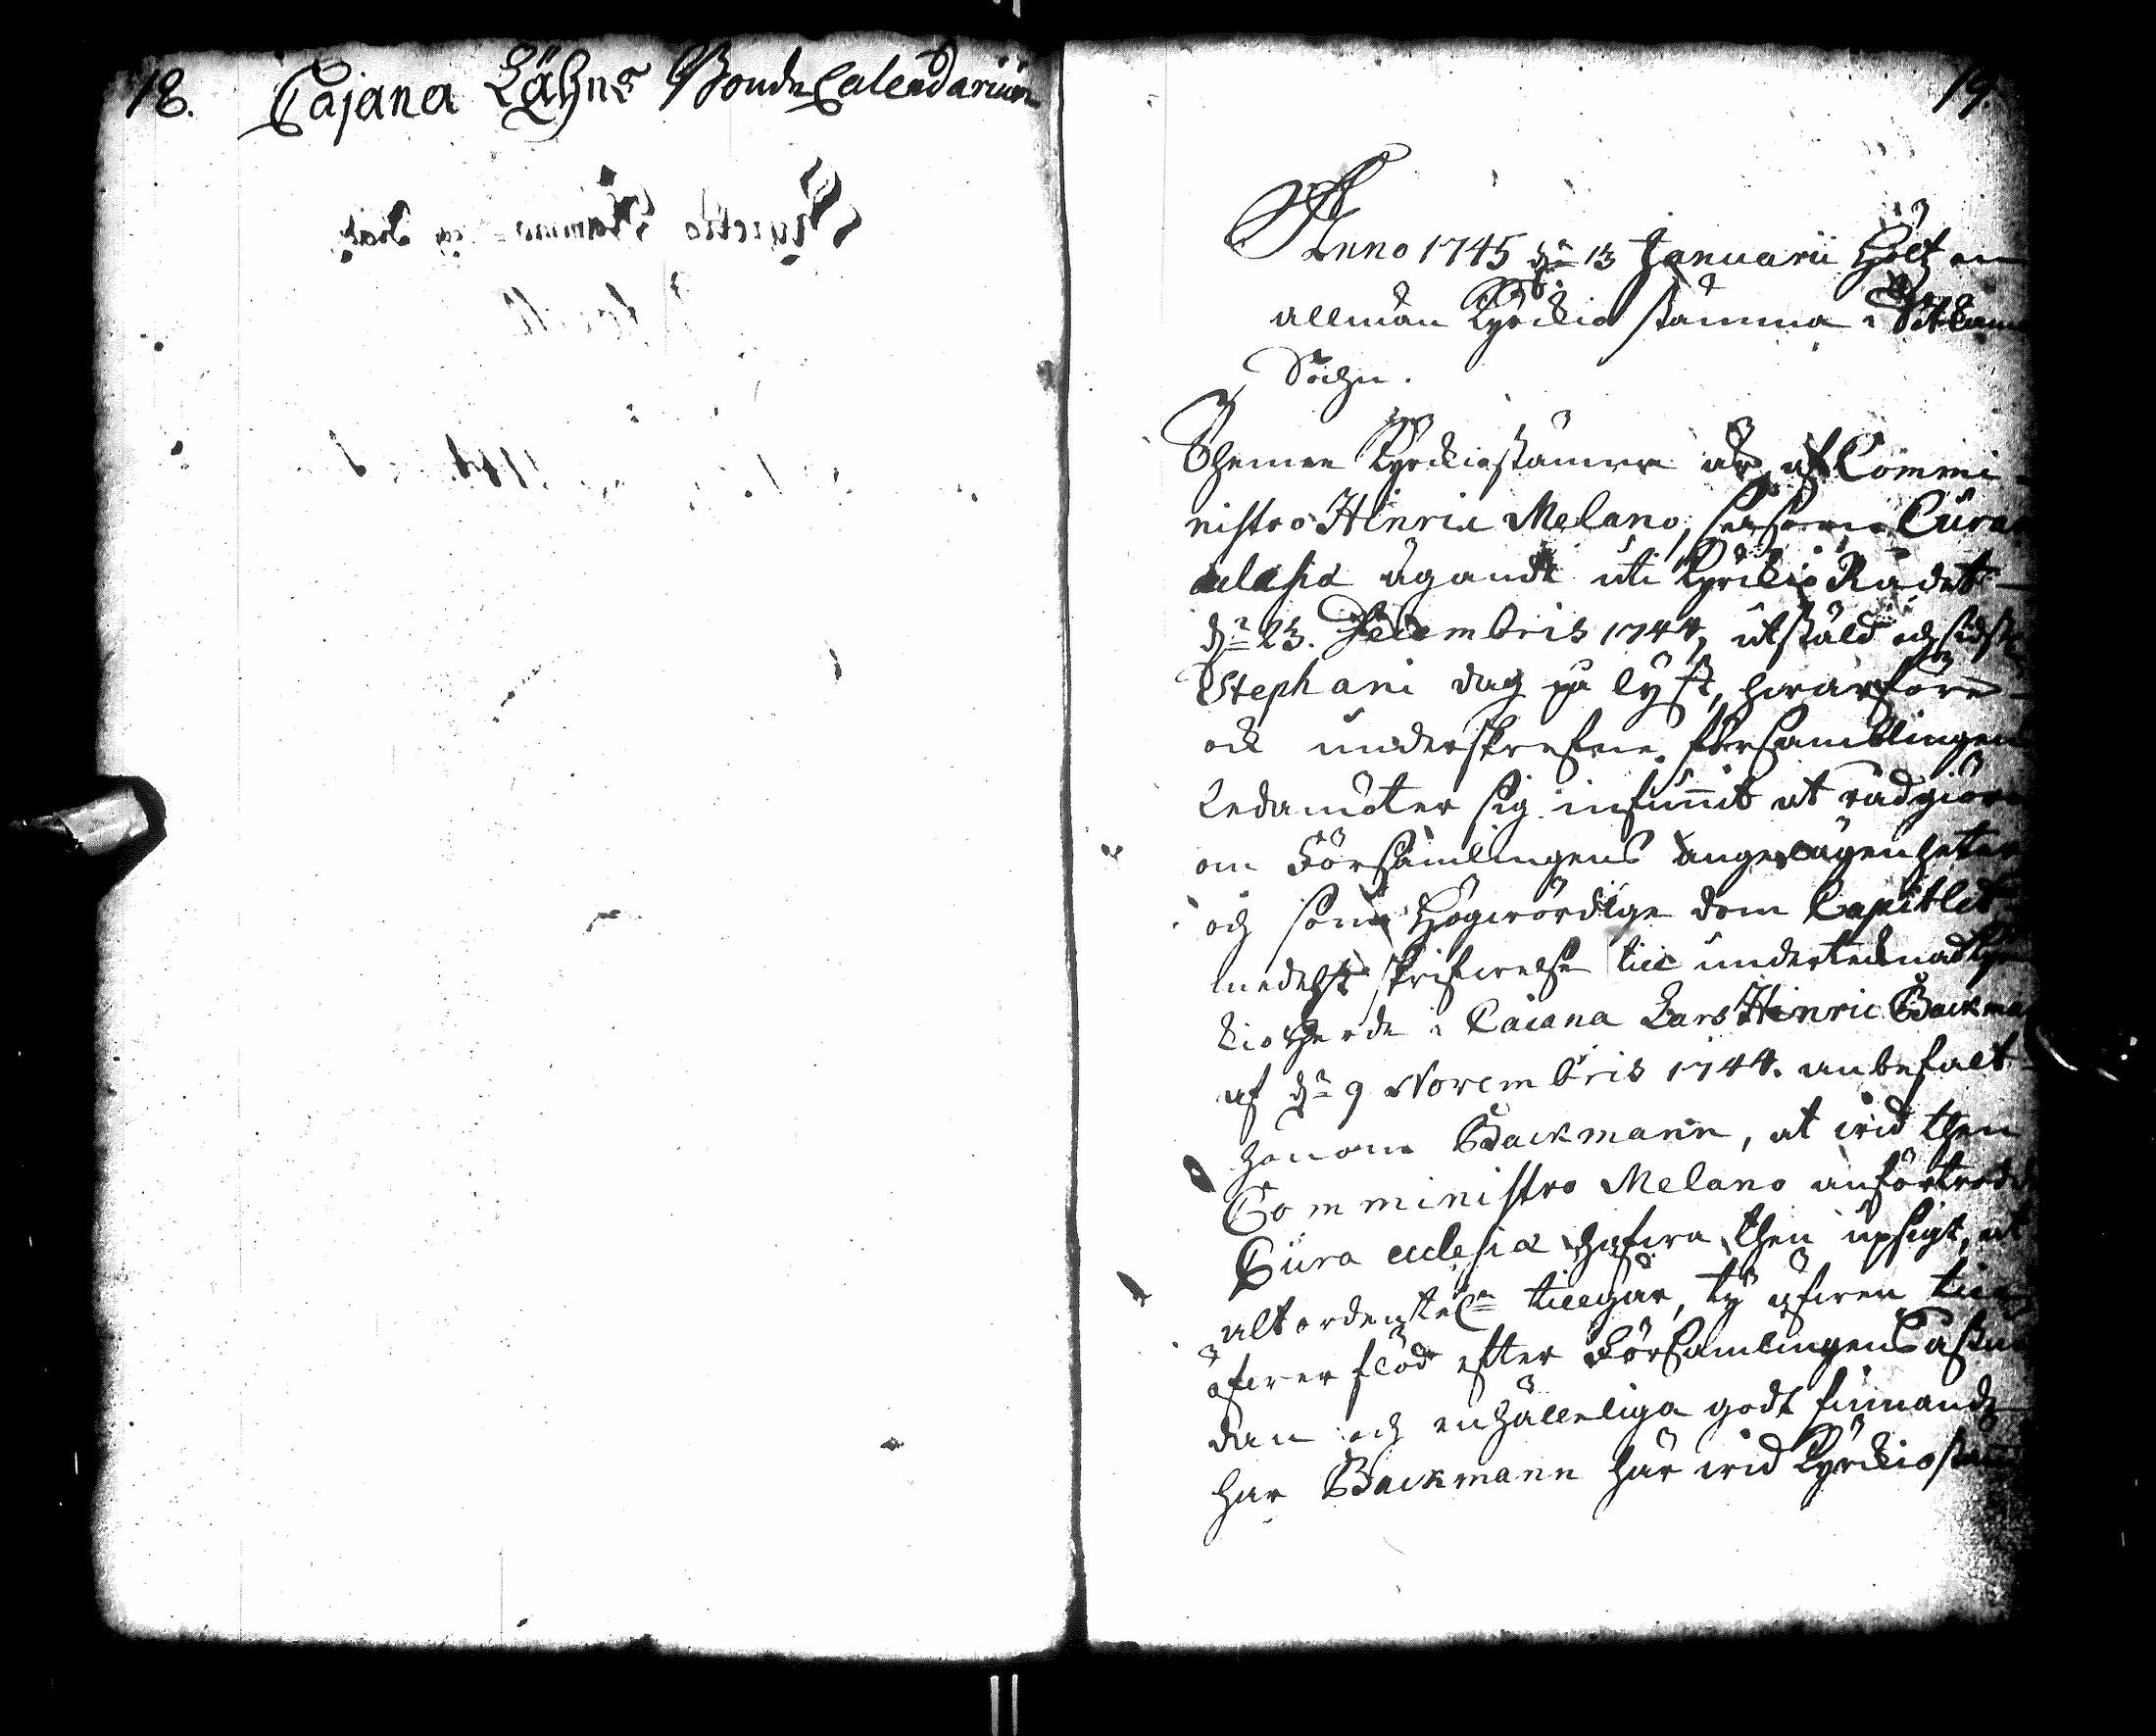 18. Cajana Lähns Bonde Calendarium
19.
Anno 1745 dn 13 Januarii Holtz en
allmän Kyrckio stämma i
Sochn.
Thenne Kyrckiostämna är af Commi-
nistro Hinric Melano, såsom Curam
eclesiæ ägande uti Kyrckio Rådet
dn 23. Decembris 1744, utstäld och sidste
Stephani dag på lyst, hwarföre
ock underskrefne församblingens
Ledamöter sig infunnit at rådgiöra
om Församlingens angelägenheter
och som Högwördige Dom Capitlet
medelst skrifwelse till undertecknad Kyr-
kioherde i Caiana Lars Hinric Backman
af dn 9 Novembris 1744. anbefalt
honom Backmann, at wid then
Comministro Melano anförtrodde
Cura eclesiæ hafwa then upsigt, at
alt ordentel: tillgår, ty äfwen till
öfwerflöd efter Församlingens åstun-
dan och enhälleliga godt finnande
har Backmann här wid Kyrckiostäm